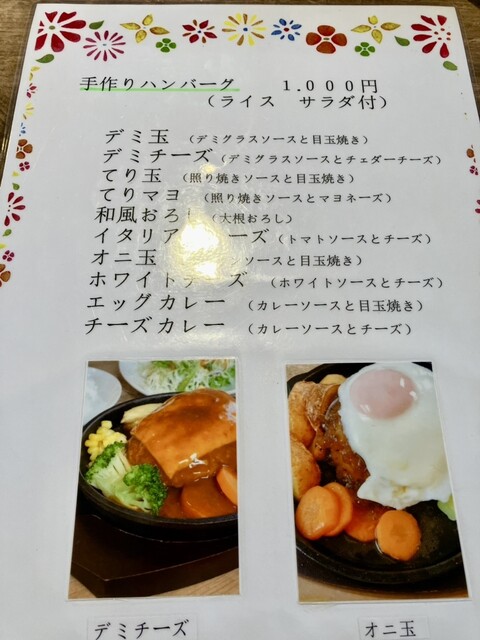 手作りハンバーグ 1.000円
(ライス サラダ付)
デミ玉 (デミグラスソースと目玉焼き)
デミチーズ (デミグラスソースとチェダーチーズ)
てり玉 (照り焼きソースと目玉焼き)
てりマヨ (照り焼きソースとマヨネーズ)
和風おろし (大根おろし)
イタリア ーズ (トマトソースとチーズ)
オニ玉 ンソースと目玉焼き)
ホワイトチーズ (ホワイトソースとチーズ)
エッグカレー (カレーソースと目玉焼き)
チーズカレー (カレーソースとチーズ)
デミチーズ
オニ玉